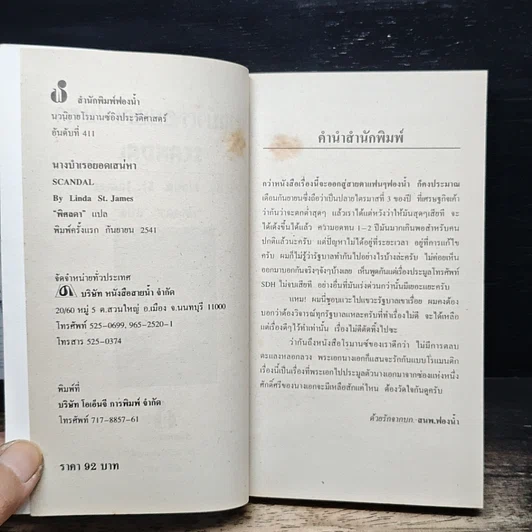 สำนักพิมพ์ฟองน้ำ
นวนิยายโรมานซ์อิงประวัติศาสตร์
อันดับที่ 411
นางบำเรอยอดเสน่หา
SCANDAL
By Linda St. James
"พิศลดา" แปล
พิมพ์ครั้งแรก กันยายน 2541
จัดจำหน่ายทั่วประเทศ
บริษัท หนังสือสายน้ำ จำกัด
20/60 หมู่ 5 ต.สวนใหญ่ อ.เมือง จ.นนทบุรี 11000
โทรศัพท์ 525-0699, 965-2520-1
โทรสาร 525-0374
พิมพ์ที่
บริษัท โอเอ็นจี การพิมพ์ จำกัด
โทรศัพท์ 717-8857-61
ราคา 92 บาท
คำนำสำนักพิมพ์
กว่าหนังสือเรื่องนี้จะออกสู่สายตาแฟนๆฟองน้ำ ก็คงประมาณ
เดือนกันยายนซึ่งถือว่าเป็นปลายไตรมาสที่ 3 ของปี ที่เศรษฐกิจเค้า
ว่ากันว่าจะตกต่ำสุดๆ แล้วเราได้แต่หวังว่าให้มันสุดๆเสียที จะ
ได้เด้งขึ้นได้แล้ว ความอดทน 1-2 ปีมันมากเกินพอสำหรับคน
ปกติแล้วนะครับ แต่ปัญหาไม่ได้อยู่ที่ระยะเวลา อยู่ที่การแก้ไข
ครับ ผมก็ไม่รู้ว่ารัฐบาลทำกันไปอย่างไรบ้างล่ะครับ ไม่ค่อยเห็น
ออกมาบอกกันจริงๆจังๆบ้างเลย เห็นพูดกันแต่เรื่องประมูลโทรศัพท์
SDH ไม่จบเสียที อย่างอื่นที่มันเร่งด่วนกว่านั้นมีเยอะแยะครับ
แหม! ผมนี่ชอบแวะไปแขวะรัฐบาลเขาเรื่อย ผมคงต้อง
บอกว่าต้องวิจารณ์ทุกรัฐบาลแหละครับที่ทำเรื่องไม่ดี จะได้เหลือ
แต่เรื่องดีๆไว้ทำเท่านั้น เรื่องไม่ดีตัดทิ้งไปซะ
ว่ากันถึงหนังสือโรมานซ์ของเราดีกว่า ไม่มีการตลบ
ตะแลงหลอกลวง พระเอกนางเอกก็แสนจะรักกันแบบโรแมนติก
เรื่องนี้เป็นเรื่องที่พระเอกไปประมูลตัวนางเอกมาจากซ่องแห่งหนึ่ง
ศักดิ์ศรีของนางเอกจะมีเหลือสักแค่ไหน ต้องวัดใจกันดูครับ
ด้วยรักจากบก. สนพ.ฟองน้ำ